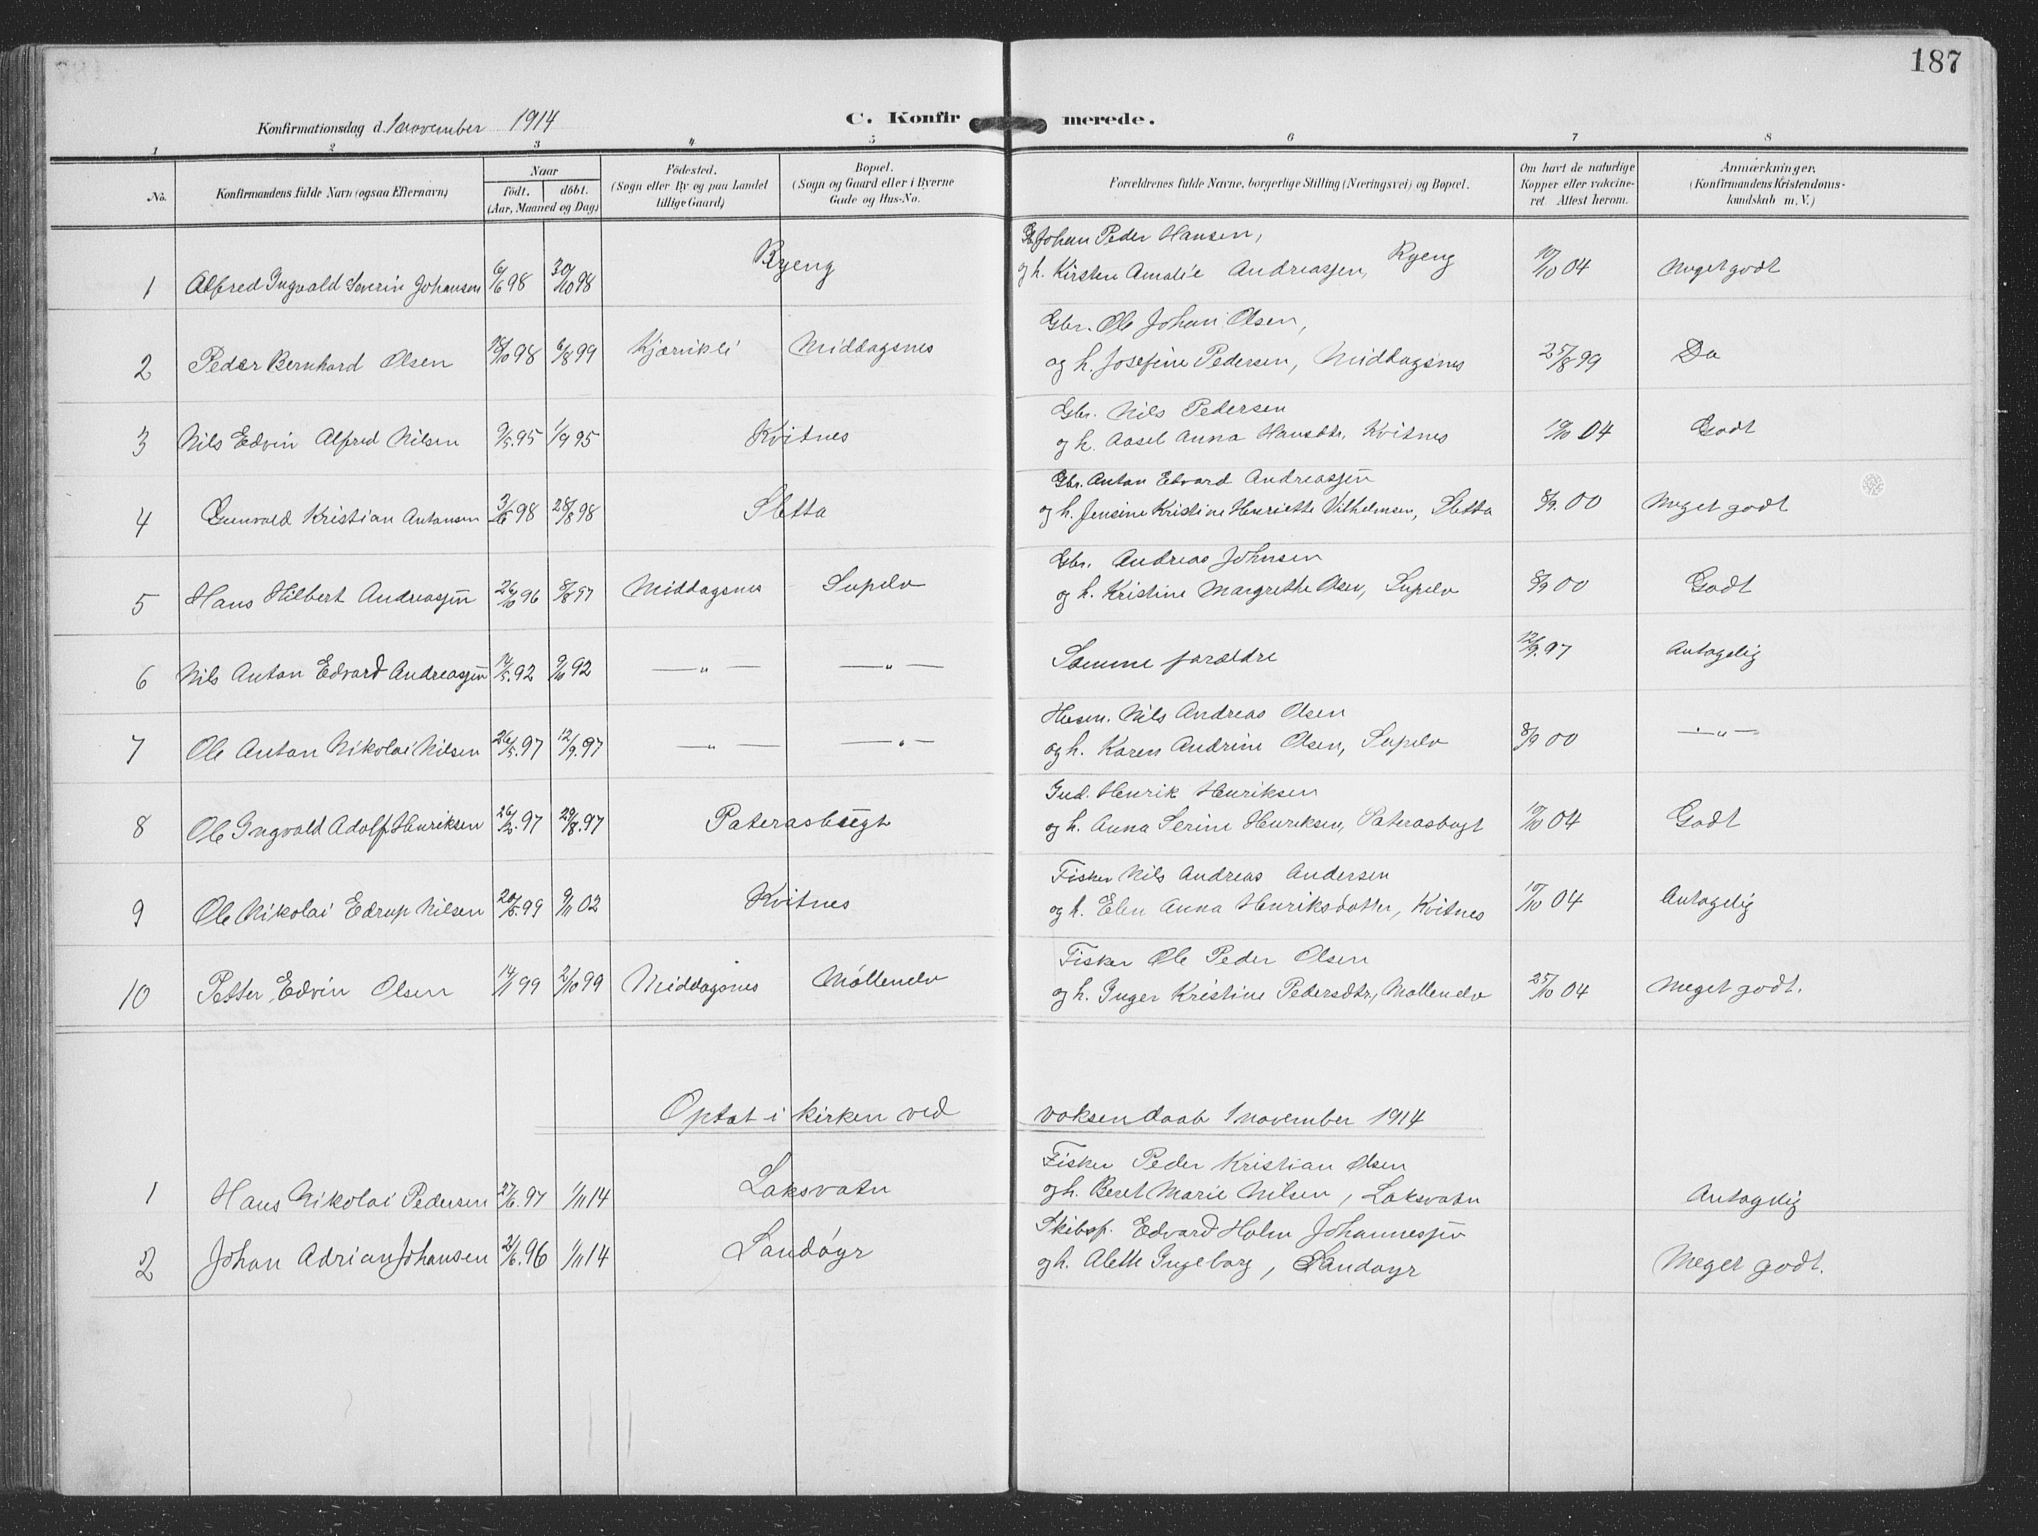 187
Konfirmationsdag d. 1 november 1914
C. Konfirmerede.
1 2 3 4 5 6 7 8
No. Konfirmandens fulde Navn (ogsaa Efternavn) Naar födt. döbt. (Aar, Maaned og Dag) Födested. (Sogn eller By og paa Landet tillige Gaard) Bopæl. (Sogn og Gaard eller i Byerne Gade og Hus-No. Forældrenes fulde Navne, borgerlige Stilling (Næringsvei) og Bopæl. Om havt de naturlige Kopper eller vakcineret Attest herom. Anmærkninger. (Konfirmandens Kristendomskundskab m. V.)
Johan Peder Hansen,
1 Alfred Ingvald Severin Johansen 6/6 98 30/10 98 Ryeng og h. Kirsten Amalie Andreasjen, Ryeng 10/10 04 Meget godt
Gbr. Ole Johan Olsen,
2 Peder Bernhard Olsen 18/10 98 6/8 99 Kjærvikli Middagsnes og h. Josefine Pedersen, Middagsnes 25/8 99 Do
Gbr. Nils Pedersen
3 Nils Edvin Alfred Nilsen 9/5.95 1/9 95 Kvitnes og h. Aasel Anna Hansdtr, Kvitnes 10/10 04 Godt
Gbr. Anton Edvard Andreasjen
4 Gunvald Kristian Antonsen 3/6 98 28/8 98 Sletta og h. Jensine Kristine Henriette Vilhelmsen, Sletta 8/9.00 Meget godt
Gbr. Andreas Johnsen
5 Hans Hilbert Andreasjen 26/10 96 8/8 97 Middagsnes Supelv og h. Kristine Margrethe Olsen, Supelv 8/9 00 Godt
6 Nils Anton Edvard Andreasjen 14/5.92 9/10 92 — " — — " — Samme forældre 12/9.97 Antagelig
Husm. Nils Andreas Olsen
7 Ole Anton Nikolai Nilsen 26/5.97 12/9.97 — " — — " — og h. Karen Andrine Olsen, Supelv 8/9 00 — " —
Ind. Henrik Henriksen
8 Ole Ingvald Adolf Henriksen 26/2.97 29/8.97 Paterasbugt og h. Anna Serine Henriksen, Paterasbugt 10/10 04 Godt
Fisker Nils Andreas Andersen
9 Ole Nikolai Edrup Nilsen 20/5.99 9/11 02 Kvitnes og h. Elen Anna Henriksdatter, Kvitnes 10/10 04 Antagelig
Fisker Ole Peder Olsen
10 Petter Edvin Olsen 14/1 99 2/10 99 Middagsnes Møllenelv og h. Inger Kristine Pedersdtr, Mollenelv 25/10 04 Meget godt.
Optat i kirken ved voksendaab 1 november 1914
Fisker Peder Kristian Olsen
1 Hans Nikolai Pedersen 27/6.97 1/11 14 Laksvatn og h. Beret Marie Nilsen, Laksvatn Antagelig
Skibsf. Edvard Holm Johannesjen
2 Johan Adrian Johansen 21/6.96 1/11 14 Sandøyr og h. Alette Ingeborg, Sandøyr Meget godt.